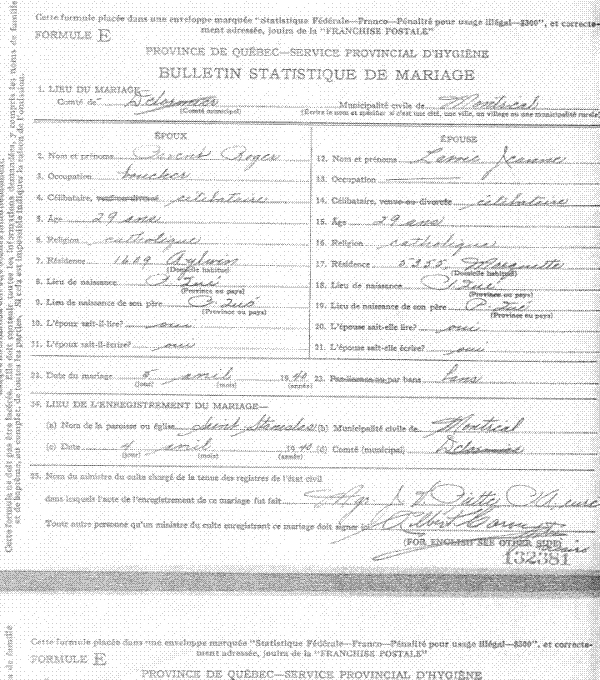 Cette formule placée dans une enveloppe marquée "Statistique Fédérale—Franco—Pénalité pour usage illégal—$300", et correcte-
ment adressée, jouira de la "FRANCHISE POSTALE"
FORMULE E
PROVINCE DE QUÉBEC—SERVICE PROVINCIAL D'HYGIÈNE
BULLETIN STATISTIQUE DE MARIAGE
1. LIEU DU MARIAGE—
Comté de Delormier Municipalité civile de Montreal
(Comté municipal) (Écrire le nom et spécifier si c'est une cité, une ville, un village ou une municipalité rurale)
ÉPOUX ÉPOUSE
2. Nom et prénoms Roger 12. Nom et prénoms Jeanne
3. Occupation boucher 13. Occupation
4. Célibataire, veuf ou divorcé célibataire 14. Célibataire, veuve ou divorcée célibataire
5. Âge 29 ans 15. Âge 29 ans
6. Religion catholique 16. Religion catholique
7. Résidence 1609 Aylwin 17. Résidence 5255 Marquette
(Domicile habituel) (Domicile habituel)
8. Lieu de naissance P. Qué 18. Lieu de naissance P. Qué
(Province ou pays) (Province ou pays)
9. Lieu de naissance de son père P. Qué 19. Lieu de naissance de son père P. Qué
(Province ou pays) (Province ou pays)
10. L'époux sait-il lire? oui 20. L'épouse sait-elle lire? oui
11. L'époux sait-il écrire? oui 21. L'épouse sait-elle écrire? oui
22. Date du mariage 5 avril 1940 23. Par licence ou par bans bans
(jour) (mois) (année)
24. LIEU DE L'ENREGISTREMENT DU MARIAGE—
(a) Nom de la paroisse ou église Saint Stanislas (b) Municipalité civile de Montreal
(c) Date 4 avril 1940 (d) Comté (municipal) Delormier
(jour) (mois) (année)
25. Nom du ministre du culte chargé de la tenue des registres de l'état civil
dans lesquels l'acte de l'enregistrement de ce mariage fut fait Mgr J. curé
Toute autre personne qu'un ministre du culte enregistrant ce mariage doit signer ici Albert
(FOR ENGLISH SEE OTHER SIDE)
132381
Cette formule placée dans une enveloppe marquée "Statistique Fédérale—Franco—Pénalité pour usage illégal—$300", et correcte-
ment adressée, jouira de la "FRANCHISE POSTALE"
FORMULE E
PROVINCE DE QUÉBEC—SERVICE PROVINCIAL D'HYGIÈNE